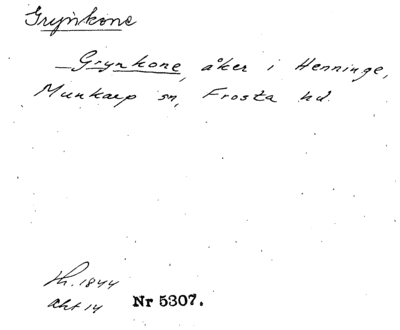 Grynkone
Grynkone, åker i Henninge,
Munkarp sn, Frosta hd.
1844
akt 14 Nr 5307.